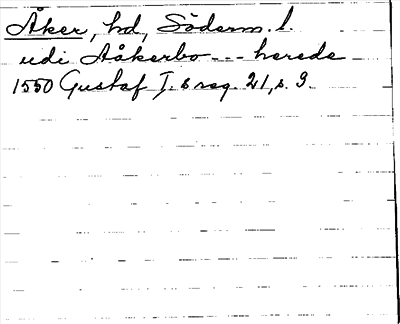 Åker, hd, Söderm. l.
udi Aåkerbo --- herede
1550 Gustaf I.s reg. 21, s. 9.